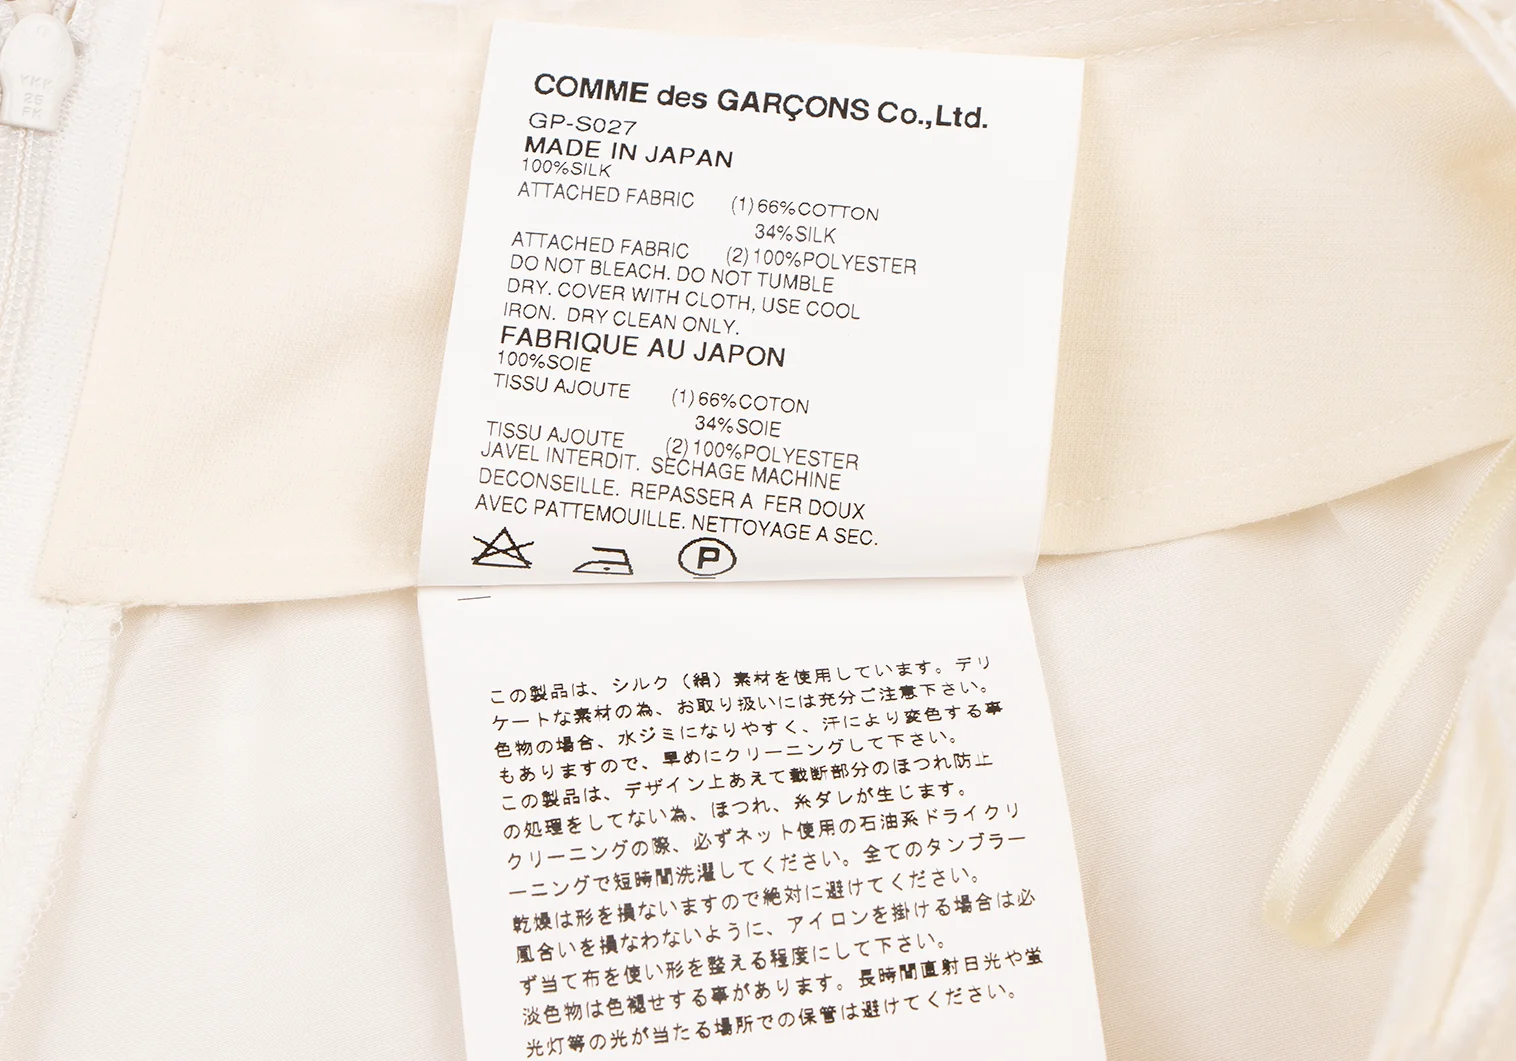 COMME des GARÇONS Co.,Ltd.
GP-S027
MADE IN JAPAN
100%SILK
ATTACHED FABRIC (1)66%COTTON
34%SILK
ATTACHED FABRIC (2)100%POLYESTER
DO NOT BLEACH. DO NOT TUMBLE
DRY. COVER WITH CLOTH, USE COOL
IRON. DRY CLEAN ONLY.
FABRIQUE AU JAPON
100%SOIE
TISSU AJOUTE (1)66%COTON
34%SOIE
TISSU AJOUTE (2)100%POLYESTER
JAVEL INTERDIT. SECHAGE MACHINE
DECONSEILLE. REPASSER A FER DOUX
AVEC PATTEMOUILLE. NETTOYAGE A SEC.
P
この製品は、シルク（絹）素材を使用しています。デリ
ケートな素材の為、お取り扱いには充分ご注意下さい。
色物の場合、水ジミになりやすく、汗により変色する事
もありますので、早めにクリーニングして下さい。
この製品は、デザイン上あえて裁断部分のほつれ防止
の処理をしてない為、ほつれ、糸ダレが生じます。
クリーニングの際、必ずネット使用の石油系ドライクリ
ーニングで短時間洗濯してください。全てのタンブラー
乾燥は形を損ないますので絶対に避けてください。
風合いを損なわないように、アイロンを掛ける場合は必
ず当て布を使い形を整える程度にして下さい。
淡色物は色褪せする事があります。長時間直射日光や蛍
光灯等の光が当たる場所での保管は避けてください。